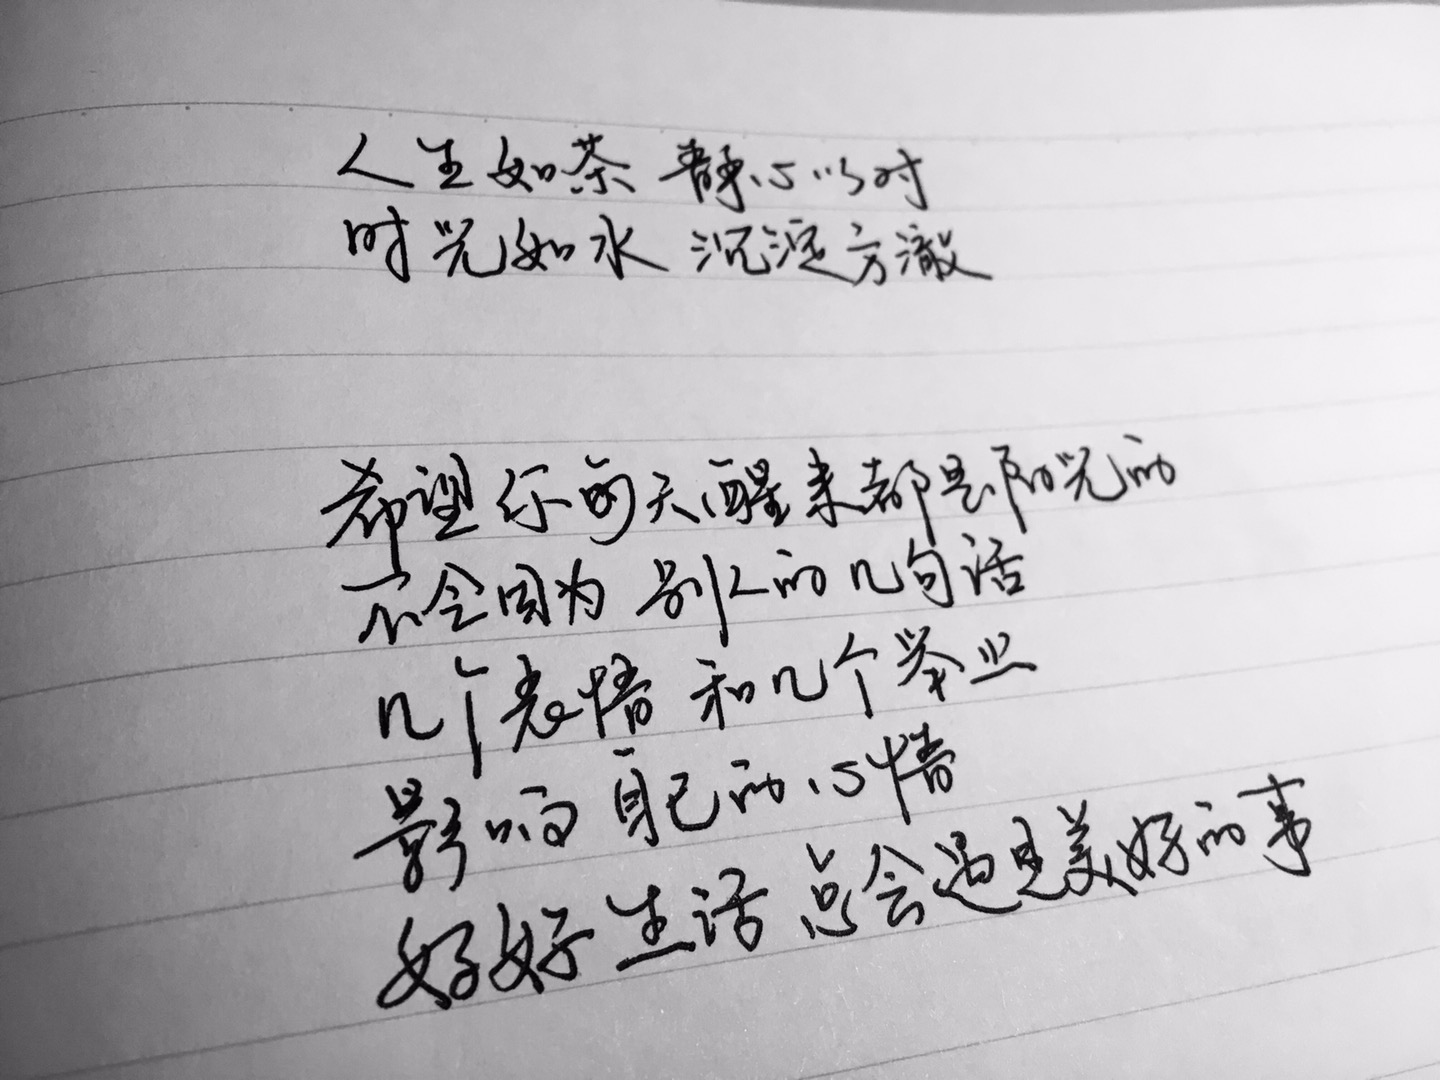 人生如茶 静心以对
时光如水 沉淀方澈
希望你每天醒来都是阳光的
不会因为别人的几句话
几个表情 和几个举止
影响自己的心情
好好生活 总会遇见美好的事